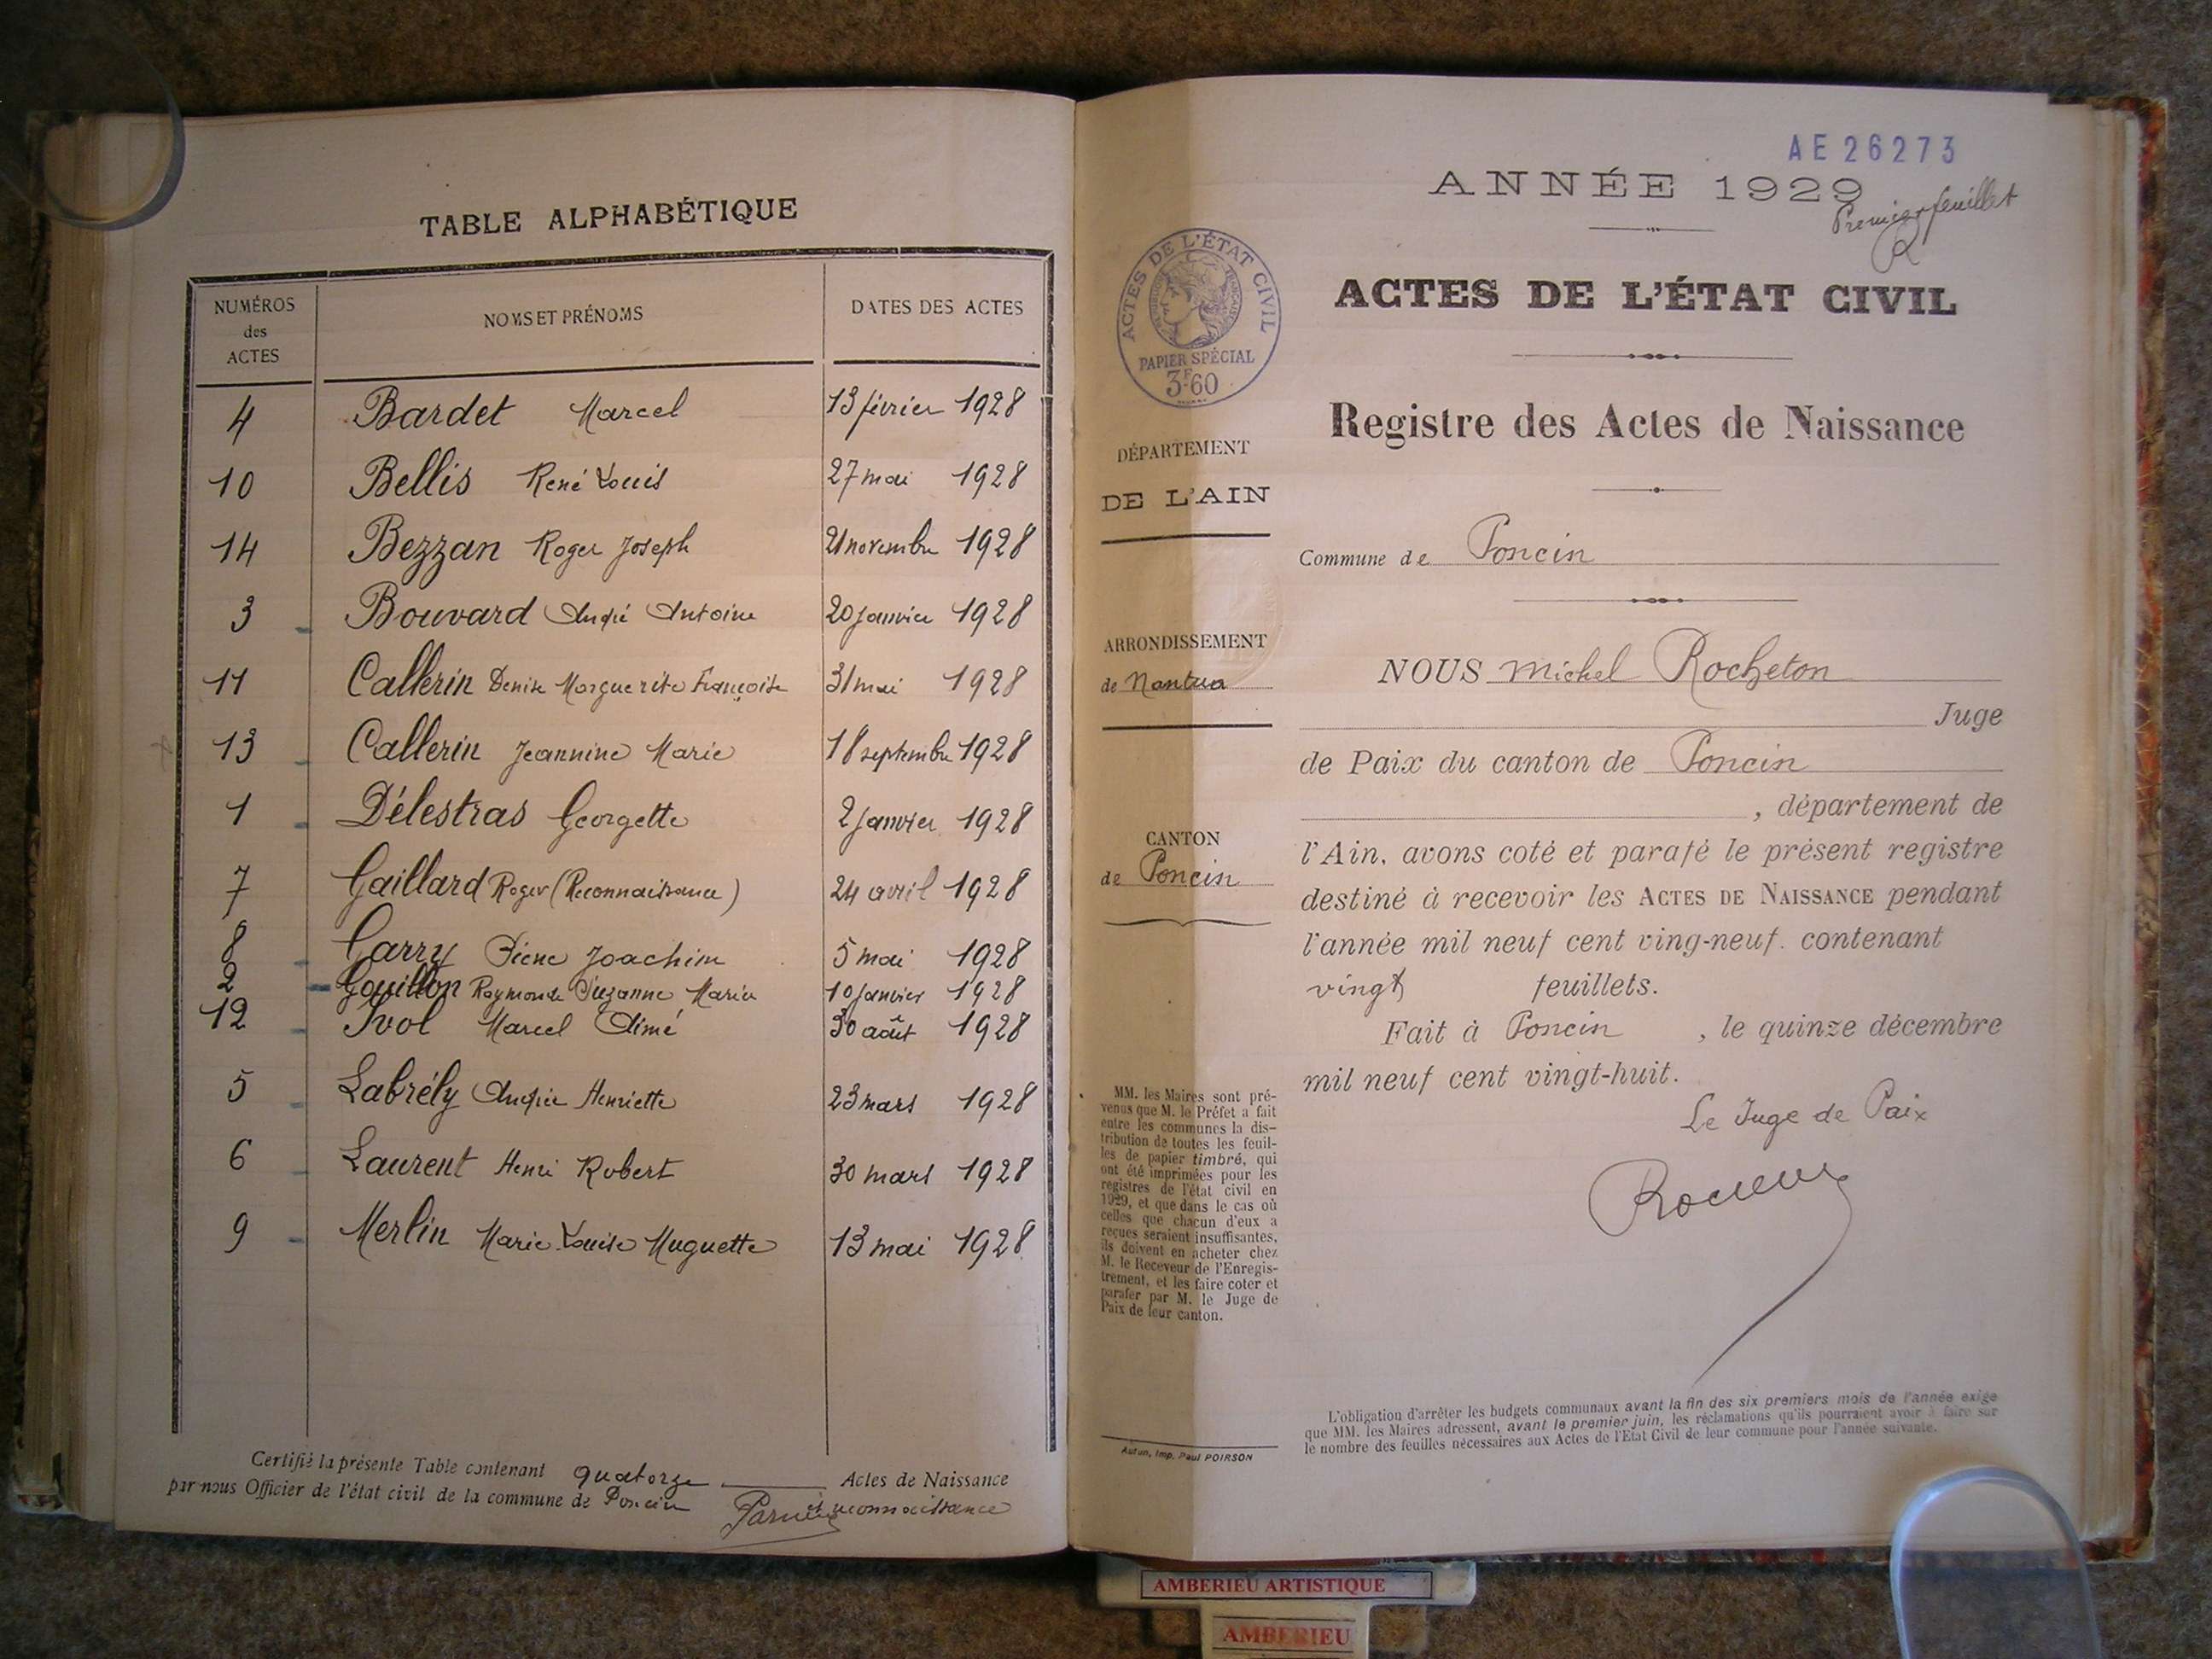 TABLE ALPHABÉTIQUE
NUMÉROS des ACTES NOMS ET PRÉNOMS DATES DES ACTES
4 Bardet Marcel 13 février 1928
10 Bellis René Louis 27 mai 1928
14 Bezzan Roger Joseph 21 novembre 1928
3 Bouvard André Antoine 20 janvier 1928
11 Callerin Denise Marguerite Françoise 31 mai 1928
13 Callerin Jeannine Marie 18 septembre 1928
1 Délestras Georgette 2 janvier 1928
7 Gaillard Roger (Reconnaissance) 24 avril 1928
8 Garry Pierre Joachim 5 mai 1928
2 Gouillon Raymonde Suzanne Maria 10 janvier 1928
12 Ivol Marcel Aimé 30 août 1928
5 Labrély Andrée Henriette 23 mars 1928
6 Laurent Henri Robert 30 mars 1928
9 Merlin Marie-Louise Muguette 13 mai 1928
Certifié la présente Table contenant quatorze Actes de Naissance
par nous Officier de l'état civil de la commune de Poncin et reconnaissance
AE 26273
ANNÉE 1929
Premier feuillet
ACTES DE L'ÉTAT CIVIL
Registre des Actes de Naissance
Commune de Poncin
NOUS Michel Rocheton
Juge
de Paix du canton de Poncin
, département de
l'Ain, avons coté et parafé le présent registre
destiné à recevoir les ACTES DE NAISSANCE pendant
l'année mil neuf cent ving-neuf. contenant
vingt feuillets.
Fait à Poncin , le quinze décembre
mil neuf cent vingt-huit.
Le Juge de Paix
L'obligation d'arrêter les budgets communaux avant la fin des six premiers mois de l'année exige
que MM. les Maires adressent, avant le premier juin, les réclamations qu'ils pourraient avoir à faire sur
le nombre des feuilles nécessaires aux Actes de l'Etat Civil de leur commune pour l'année suivante.
ACTES DE L'ÉTAT CIVIL
RÉPUBLIQUE FRANÇAISE
PAPIER SPÉCIAL
3F60
DÉPARTEMENT
DE L'AIN
ARRONDISSEMENT
de Nantua
CANTON
de Poncin
MM. les Maires sont pré-
venus que M. le Préfet a fait
entre les communes la dis-
tribution de toutes les feuil-
les de papier timbré, qui
ont été imprimées pour les
registres de l'état civil en
1929, et que dans le cas où
celles que chacun d'eux a
reçues seraient insuffisantes,
ils doivent en acheter chez
M. le Receveur de l'Enregis-
trement, et les faire coter et
parafer par M. le Juge de
Paix de leur canton.
Autun, Imp. Paul POIRSON
AMBERIEU ARTISTIQUE
AMBERIEU